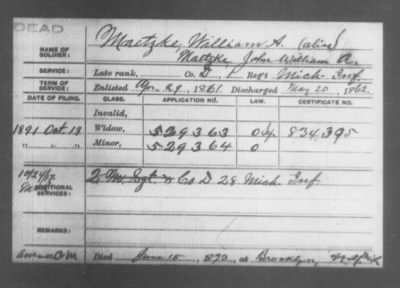 DEAD
NAME OF SOLDIER: Maetzke, William A. (alias)
Matzke, John William A.
SERVICE: Late rank, Co. D, 1 Reg't Mich. Inf.
TERM OF SERVICE: Enlisted Apr. 29, 1861. Discharged May 20, 1862.
DATE OF FILING. CLASS. APPLICATION NO. LAW. CERTIFICATE NO.
Invalid,
1891 Oct. 13 Widow, 529363 834,395
" " Minor, 529364 0
ADDITIONAL SERVICES: Co D 28 Mich. Inf.
REMARKS:
Died June 15, 1873, at Brooklyn,